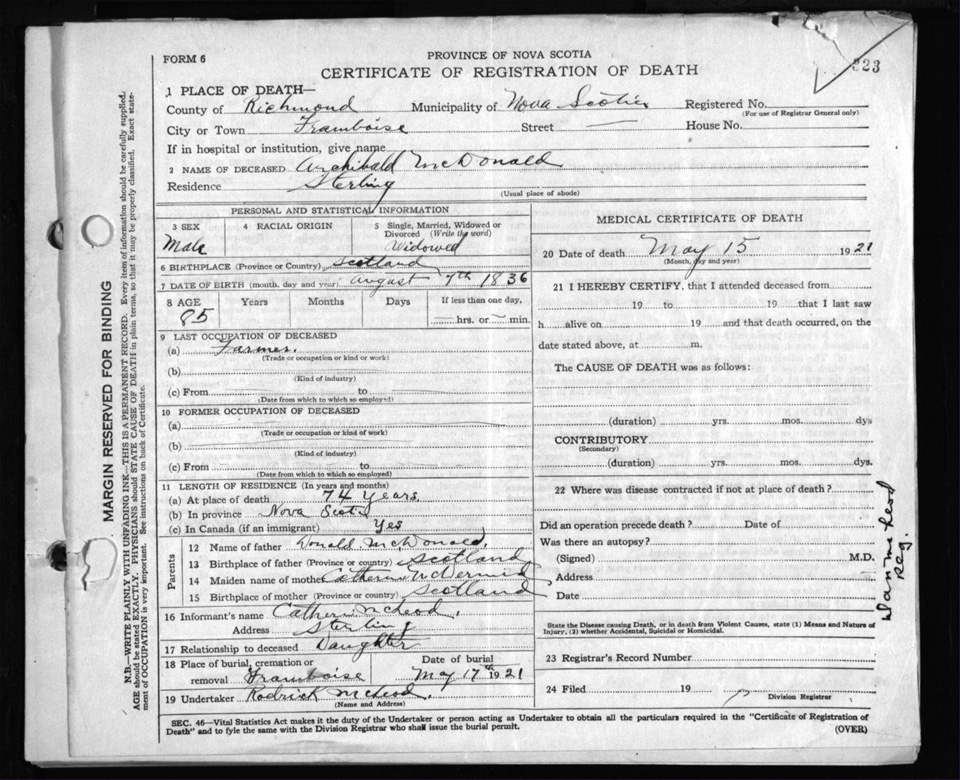 FORM 6
PROVINCE OF NOVA SCOTIA
CERTIFICATE OF REGISTRATION OF DEATH
323
1 PLACE OF DEATH—
County of Richmond Municipality of Nova Scotia Registered No.
(For use of Registrar General only)
City or Town Framboise Street — House No.
If in hospital or institution, give name
2 NAME OF DECEASED Archibald McDonald
Residence Sterling
(Usual place of abode)
PERSONAL AND STATISTICAL INFORMATION
3 SEX Male
4 RACIAL ORIGIN
5 Single, Married, Widowed or Divorced (Write the word) Widowed
6 BIRTHPLACE (Province or Country) Scotland
7 DATE OF BIRTH (month, day and year) August 7th 1836
8 AGE Years Months Days If less than one day,
85 — hrs. or — min.
9 LAST OCCUPATION OF DECEASED
(a) Farmer.
(Trade or occupation or kind or work)
(b)
(Kind of industry)
(c) From to
(Date from which to which so employed)
10 FORMER OCCUPATION OF DECEASED
(a)
(Trade or occupation or kind of work)
(b)
(Kind of industry)
(c) From to
(Date from which to which so employed)
11 LENGTH OF RESIDENCE (In years and months)
(a) At place of death 74 Years.
(b) In province Nova Scotia
(c) In Canada (if an immigrant) Yes
Parents
12 Name of father Donald McDonald.
13 Birthplace of father (Province or country) Scotland
14 Maiden name of mother Catherine McDermid
15 Birthplace of mother (Province or country) Scotland
16 Informant's name Catherine McLeod.
Address Sterling
17 Relationship to deceased Daughter
18 Place of burial, cremation or removal Framboise
Date of burial May 17th 1921
19 Undertaker Rodrick McLeod.
(Name and Address)
MEDICAL CERTIFICATE OF DEATH
20 Date of death May 15 1921
(Month, day and year)
21 I HEREBY CERTIFY, that I attended deceased from
19 to 19 that I last saw
h alive on 19 and that death occurred, on the
date stated above, at m.
The CAUSE OF DEATH was as follows:
(duration) yrs. mos. dys
CONTRIBUTORY
(Secondary)
(duration) yrs. mos. dys.
22 Where was disease contracted if not at place of death?
Did an operation precede death? Date of
Was there an autopsy?
(Signed) M.D.
Address
Date
Dan McLeod
Reg.
State the Disease causing Death, or in death from Violent Causes, state (1) Means and Nature of
Injury, (2) whether Accidental, Suicidal or Homicidal.
23 Registrar's Record Number
24 Filed 19
Division Registrar
SEC. 46—Vital Statistics Act makes it the duty of the Undertaker or person acting as Undertaker to obtain all the particulars required in the "Certificate of Registration of
Death" and to fyle the same with the Division Registrar who shall issue the burial permit.
(OVER)
MARGIN RESERVED FOR BINDING
N.B.—WRITE PLAINLY WITH UNFADING INK—THIS IS A PERMANENT RECORD. Every item of information should be carefully supplied.
AGE should be stated EXACTLY. PHYSICIANS should STATE CAUSE OF DEATH in plain terms, so that it may be properly classified. Exact state-
ment of OCCUPATION is very important. See instructions on back of Certificate.